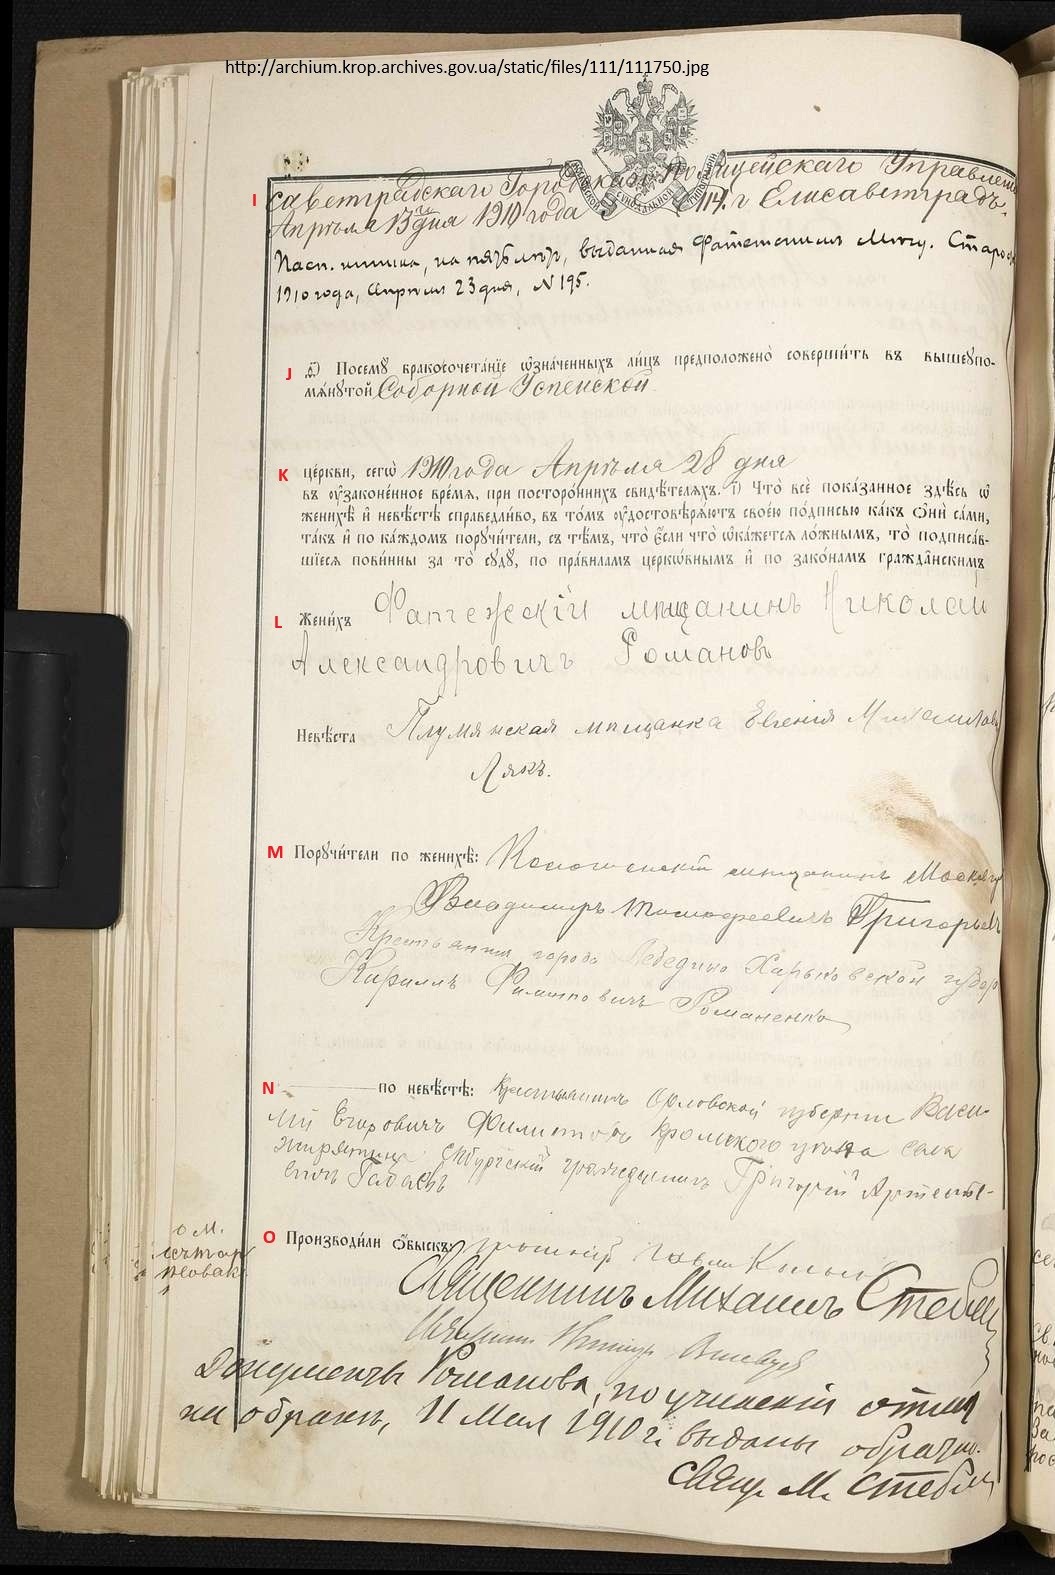 http://archium.krop.archives.gov.ua/static/files/111/111750.jpg
I саветградскаго Городскаго Полицейскаго Управленія
Апрѣля 13го дня 1910 года г Елисаветградъ.
Пасп. книжка, на пять лѣтъ, выданная Фатежскимъ Мѣщ. Старос
1910 года, Апрѣля 23 дня, N 195.
J ѕ҃) Посемꙋ бракосочета́нїе ѡзна́ченныхъ ли́цъ предположено̀ соверши́ть въ вышеꙋпо-
мѧ́нꙋтой Соборной Успенской
K це́ркви, сегѡ̀ 1910 года Апрѣля 28 дня
въ ѹ҆зако́ненное вре́мѧ, при посторо́ннихъ свидѣ́телѧхъ. з҃) Что̀ всѐ пока́занное здѣ́сь ѡ҆
женихѣ̀ и҆ невѣ́стѣ справедли́во, въ то́мъ ѹ҆достовѣрѧ́ютъ своею по́дписью ка́къ ѻ҆нѝ са́ми,
та́къ и҆ по ка́ждомъ порꙋчи́тели, съ тѣ́мъ, что̀ є҆́сли что̀ ѡ҆ка́жетсѧ ло́жнымъ, то̀ подписа́в-
шїесѧ пови́нны за то̀ сꙋдꙋ̀, по пра́виламъ церко́внымъ и҆ по зако́намъ гражда́нскимъ
L Жени́хъ Фатежскій мѣщанинъ Николай
Александровичъ Романовъ
Невѣ́ста Плумянская мѣщанка Евгенія Михайлов
Лякъ.
M Порꙋчи́тели по женихѣ̀: мѣщанинъ
Владимиръ Тимофеевичъ Григорьевъ
Крестьянинъ города Лебедина Харьковской губер
Кириллъ Филиповичъ Романенко
N по невѣ́стѣ: Крестьянинъ Орловской губерніи Васи-
лій Егоровичъ Филиповъ Кромского уѣзда села
гражданинъ Григорій Артемье-
вичъ
O Производи́ли ѻ҆́быскъ: Павлъ
Священникъ Михаилъ Стебли
Документъ Романова, по учиненіи отмѣт
ки о бракѣ, 11 Мая 1910 г. выданы обратно.
Свящ. М. Стебли